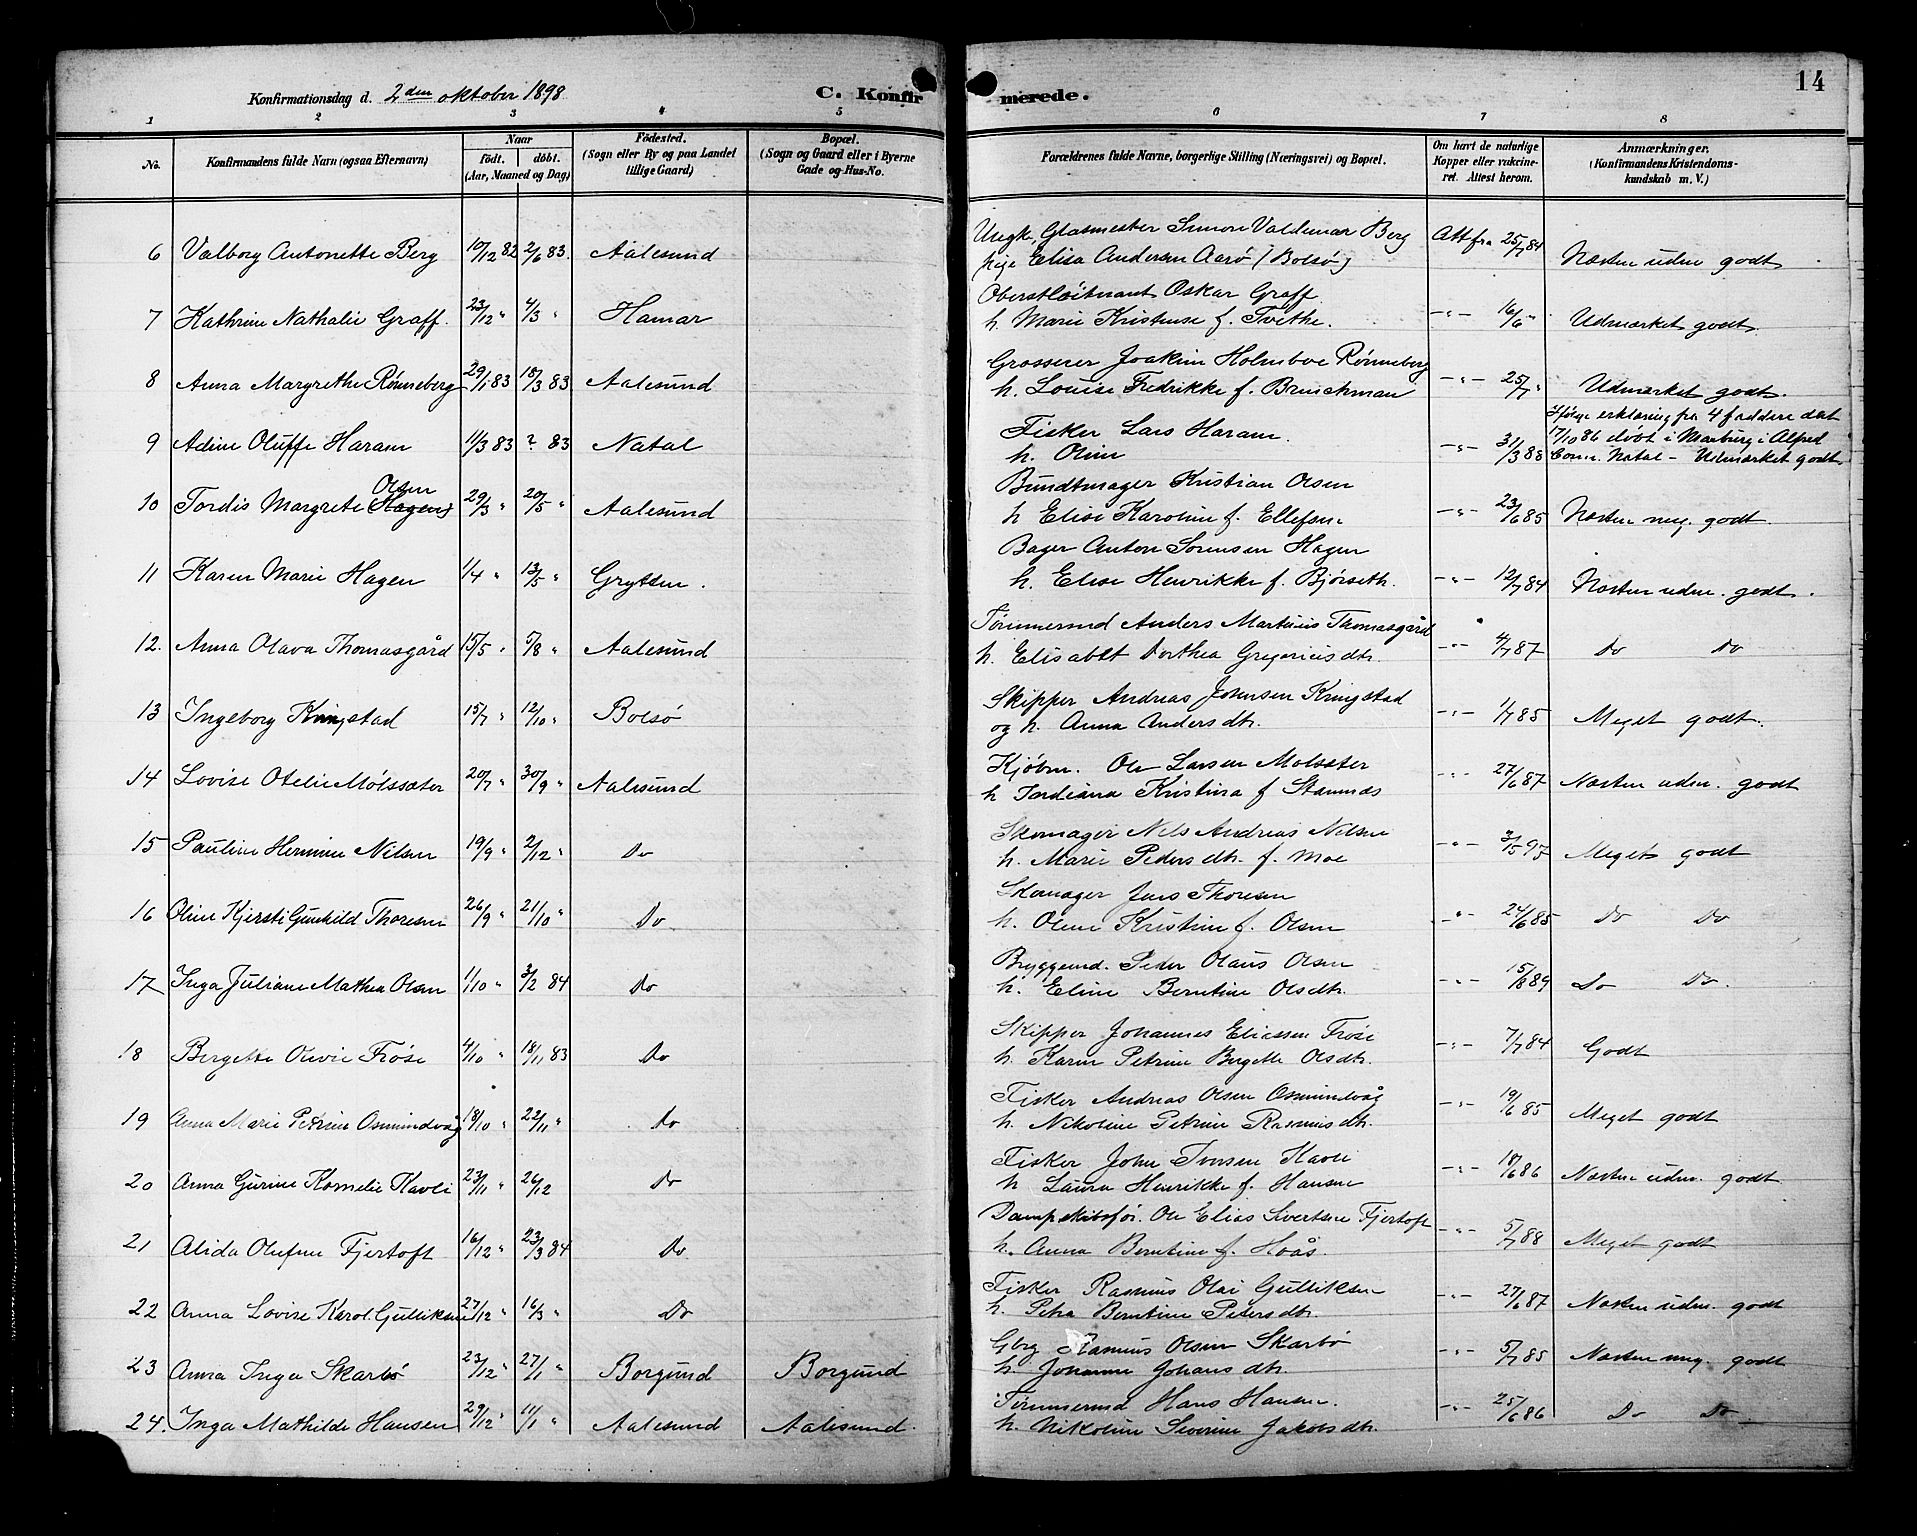 14
Konfirmationsdag d. 2den oktober 1898 C. Konfirmerede.
1 2 3 4 5 6 7 8
No. Konfirmandens fulde Navn (ogsaa Efternavn) Naar födt. döbt. (Aar, Maaned og Dag) Födested. (Sogn eller By og paa Landet tillige Gaard) Bopæl. (Sogn og Gaard eller i Byerne Gade og Hus-No. Forældrenes fulde Navne, borgerlige Stilling (Næringsvei) og Bopæl. Om havt de naturlige Kopper eller vakcineret. Attest herom. Anmærkninger. (Konfirmandens Kristendomskundskab m. V.)
Ungk. Glasmester Simon Valdemar Berg
6 Valborg Antonette Berg 10/12 82 2/6 83. Aalesund pige Elisa Andersen Aarø (Bolsø) Att fra 25/7 84 Næsten udm godt
Oberstløitnant Oskar Graff.
7 Kathrine Nathalie Graff. 23/12 " 4/3 " Hamar h. Marie Kristense f. Tvethe. -"- 16/6 " Udmærket godt.
Grosserer Joakim Holmboe Rønneberg
8 Anna Margrethe Rønneberg 29/1 83 18/3 83 Aalesund h. Louise Fredrikke f. Brinchman -"- 25/7 " Udmærket godt.
Fisker Lars Haram. Ifølge erklæring fra 4 faddere dat
9 Adine Oluffe Haram 11/3 83 ? 83 Natal h. Oline -"- 31/3 88 17/10 86 døbt i Marburg i Alfred
Conn. Natal - Udmærket godt.
Olsen Bundtmager Kristian Olsen
10 Tordis Margrete (Hagen) 29/3 " 20/5 " Aalesund h Elise Karoline f. Ellefsen -"- 23/6 85 Næsten meg. godt.
Bager Anton Sorensen Hagen
11 Karen Marie Hagen 1/4 " 13/5 " Grytten. h. Elise Henrikke f. Bjørseth. -"- 12/7 84 Næsten udm. godt.
Tømmermd Anders Martinus Thomasgård
12. Anna Olava Thomasgård 15/5 " 5/8 " Aalesund h. Elisabet Dorthea Gregoriusdtr. -"- 4/7 87 Do Do
Skipper Andreas Johnsen Kringstad
13 Ingeborg Kringstad 15/7 " 12/10 " Bolsø og h. Anna Andersdtr. -"- 1/7 85 Meget godt.
Kjøbm. Ole Larsen Molsæter
14 Lovise Otelie Mölssæter 20/7 " 30/9 " Aalesund h Jordiana Kristina f Stamnæs -"- 27/6 87 Næsten udm. godt
Skomager Nils Andreas Nilsen
15 Pauline Hermine Nilsen 19/9 " 2/12 " Do h. Marie Pedersdtr. f. Moe -"- 3/5 95 Meget godt
Skomager Jens Thoresen
16 Oline Kjersti Gunhild Thoresen 26/9 " 21/10 " Do h. Oline Kristine f. Olsen -"- 24/6 85 Do Do
Bryggemd. Peder Olaus Olsen
17 Inga Juliane Mathea Olsen 1/10 " 3/2 84 Do h. Eline Berntine Olsdtr. -"- 15/8 89 Do Do.
Skipper Johannes Eliassen Frøse
18 Bergette Olivie Frøse 4/10 " 18/11 83 Do h. Karen Petrine Bergette Olsdtr. -"- 7/7 84 Godt
Fisker Andreas Olsen Osmundvåg
19 Anna Marie Petrine Osmundvåg 18/10 " 22/11 " Do h. Nikoline Petrine Rasmusdtr. -"- 19/6 85 Meget godt
Fisker John Iversen Havli
20 Anna Gurine Kornelie Havli 23/11 " 26/12 Do h Laura Henrikke f. Hansen -"- 18/6 86 Næsten udm. godt
Dampskibsför. Ole Elias Sivertsen Fjertoft
21 Alida Olufine Fjertoft 16/12 " 23/3 84 Do h. Anna Berntine f. Hoås. -"- 5/7 88 Meget godt
Fisker Rasmus Olai Gulliksen
22 Anna Lovise Karol. Gulliksen 27/12 " 16/3 " Do h. Petra Berntine Petersdtr. -"- 27/6 87 Næsten udm. godt
Gbrg Rasmus Olsen Skarbø
23 Anna Inga Skarbø 23/12 " 27/1 " Borgund Borgund h. Johanne Johansdtr. -"- 5/7 85 Næsten meg. godt
Tømmermd Hans Hansen
24. Inga Mathilde Hansen 29/12 " 11/1 " Aalesund Aalesund. h. Nikoline Severine Jakobsdtr. -"- 25/6 86 Do Do